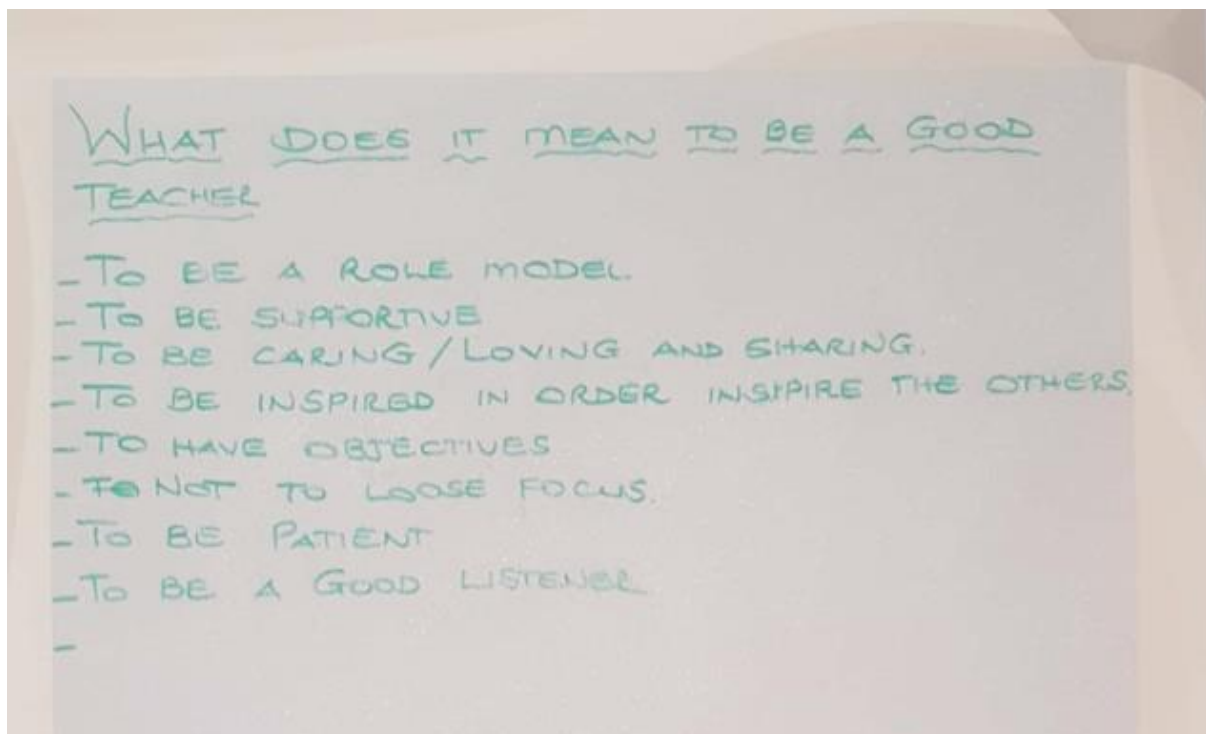 WHAT DOES IT MEAN TO BE A GOOD
TEACHER
- TO BE A ROLE MODEL.
- TO BE SUPPORTIVE
- TO BE CARING / LOVING AND SHARING.
- TO BE INSPIRED IN ORDER INSPIRE THE OTHERS.
- TO HAVE OBJECTIVES
- TO NOT TO LOOSE FOCUS.
- TO BE PATIENT
- TO BE A GOOD LISTENER
-